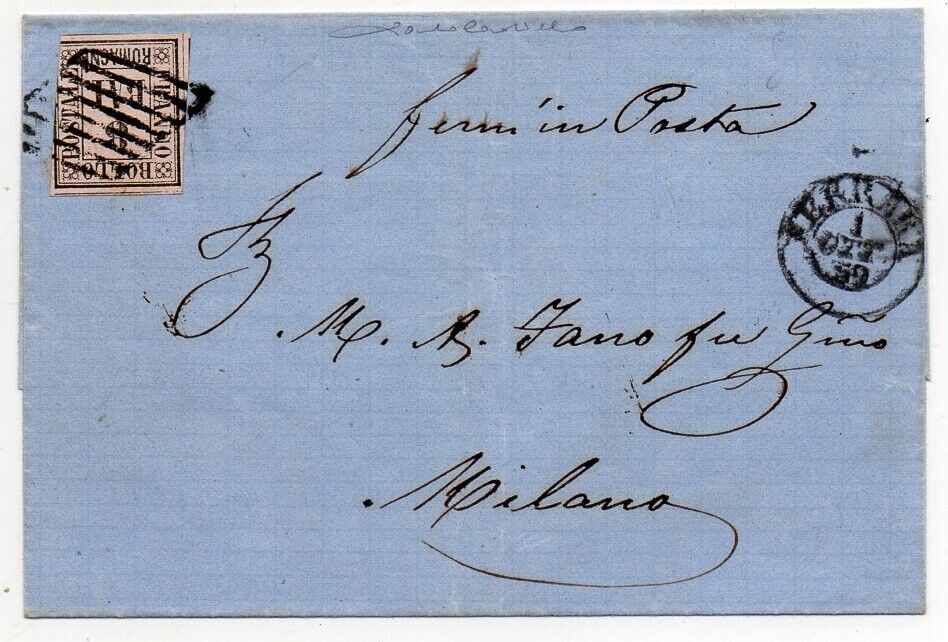 FRANCO
BOLLO
POSTALE
ROMAGNE
BAI
8
ferm' in Posta
FERRARA
1
OTT
59
M. A. Fano fu Gino
Milano